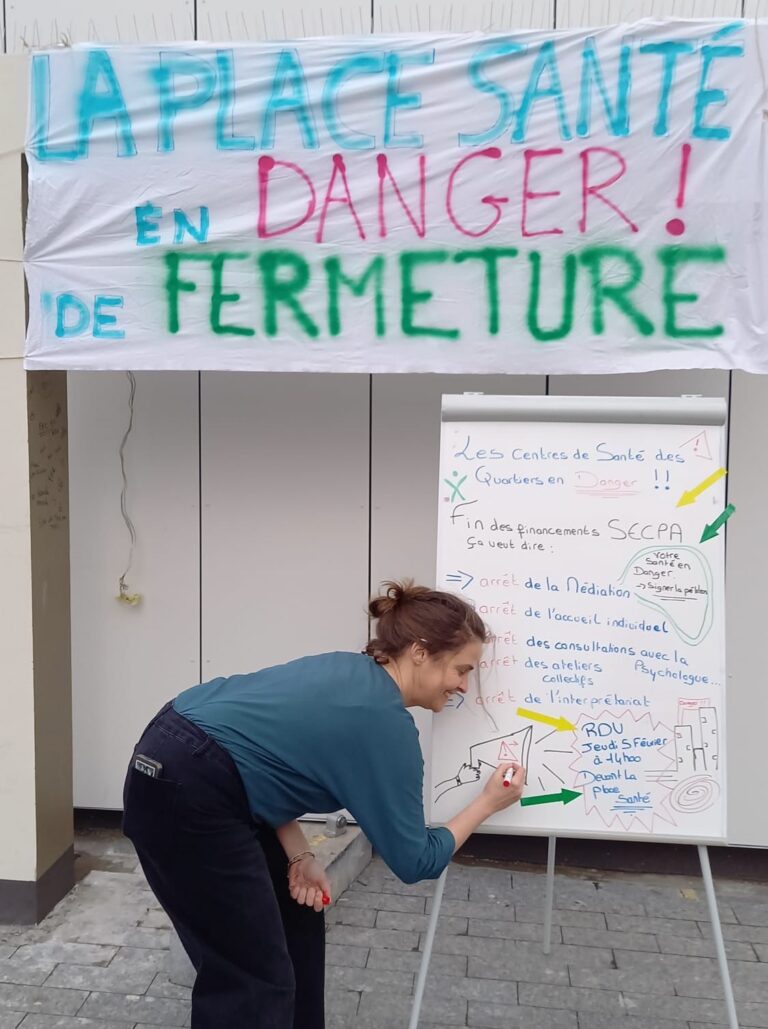 LA PLACE SANTÉ
EN DANGER !
DE FERMETURE
Les Centres de Santé des
Quartiers en Danger !!
Fin des financements SECPA
Ça veut dire :
Votre
Santé en
Danger.
→ Signer la pétition
=> arrêt de la Médiation
arrêt de l'accueil individuel
arrêt des consultations avec la
Psychologue...
arrêt des ateliers
collectifs
=> arrêt de l'interprétariat
RDV
Jeudi 5 Février
à 14h00
Devant la
place
Santé
Danger